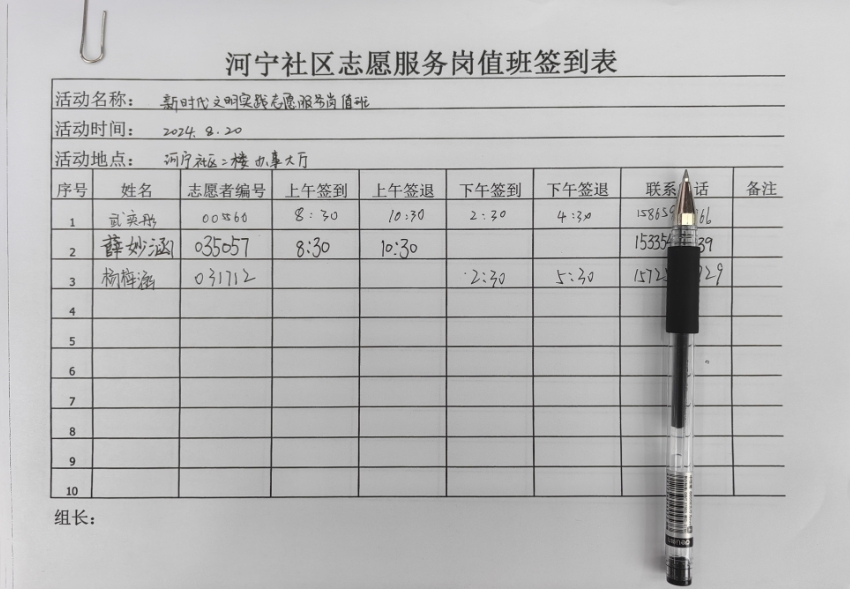 河宁社区志愿服务岗值班签到表
活动名称： 新时代文明实践志愿服务岗值班
活动时间： 2024.8.20
活动地点： 河宁社区二楼办事大厅
序号 姓名 志愿者编号 上午签到 上午签退 下午签到 下午签退 联系 话 备注
1 武奕彤 00560 8:30 10:30 2:30 4:30
2 薛妙涵 035057 8:30 10:30 15335 39
3 杨梓涵 031712 2:30 5:30 1572 929
4
5
6
7
8
9
10
组长：